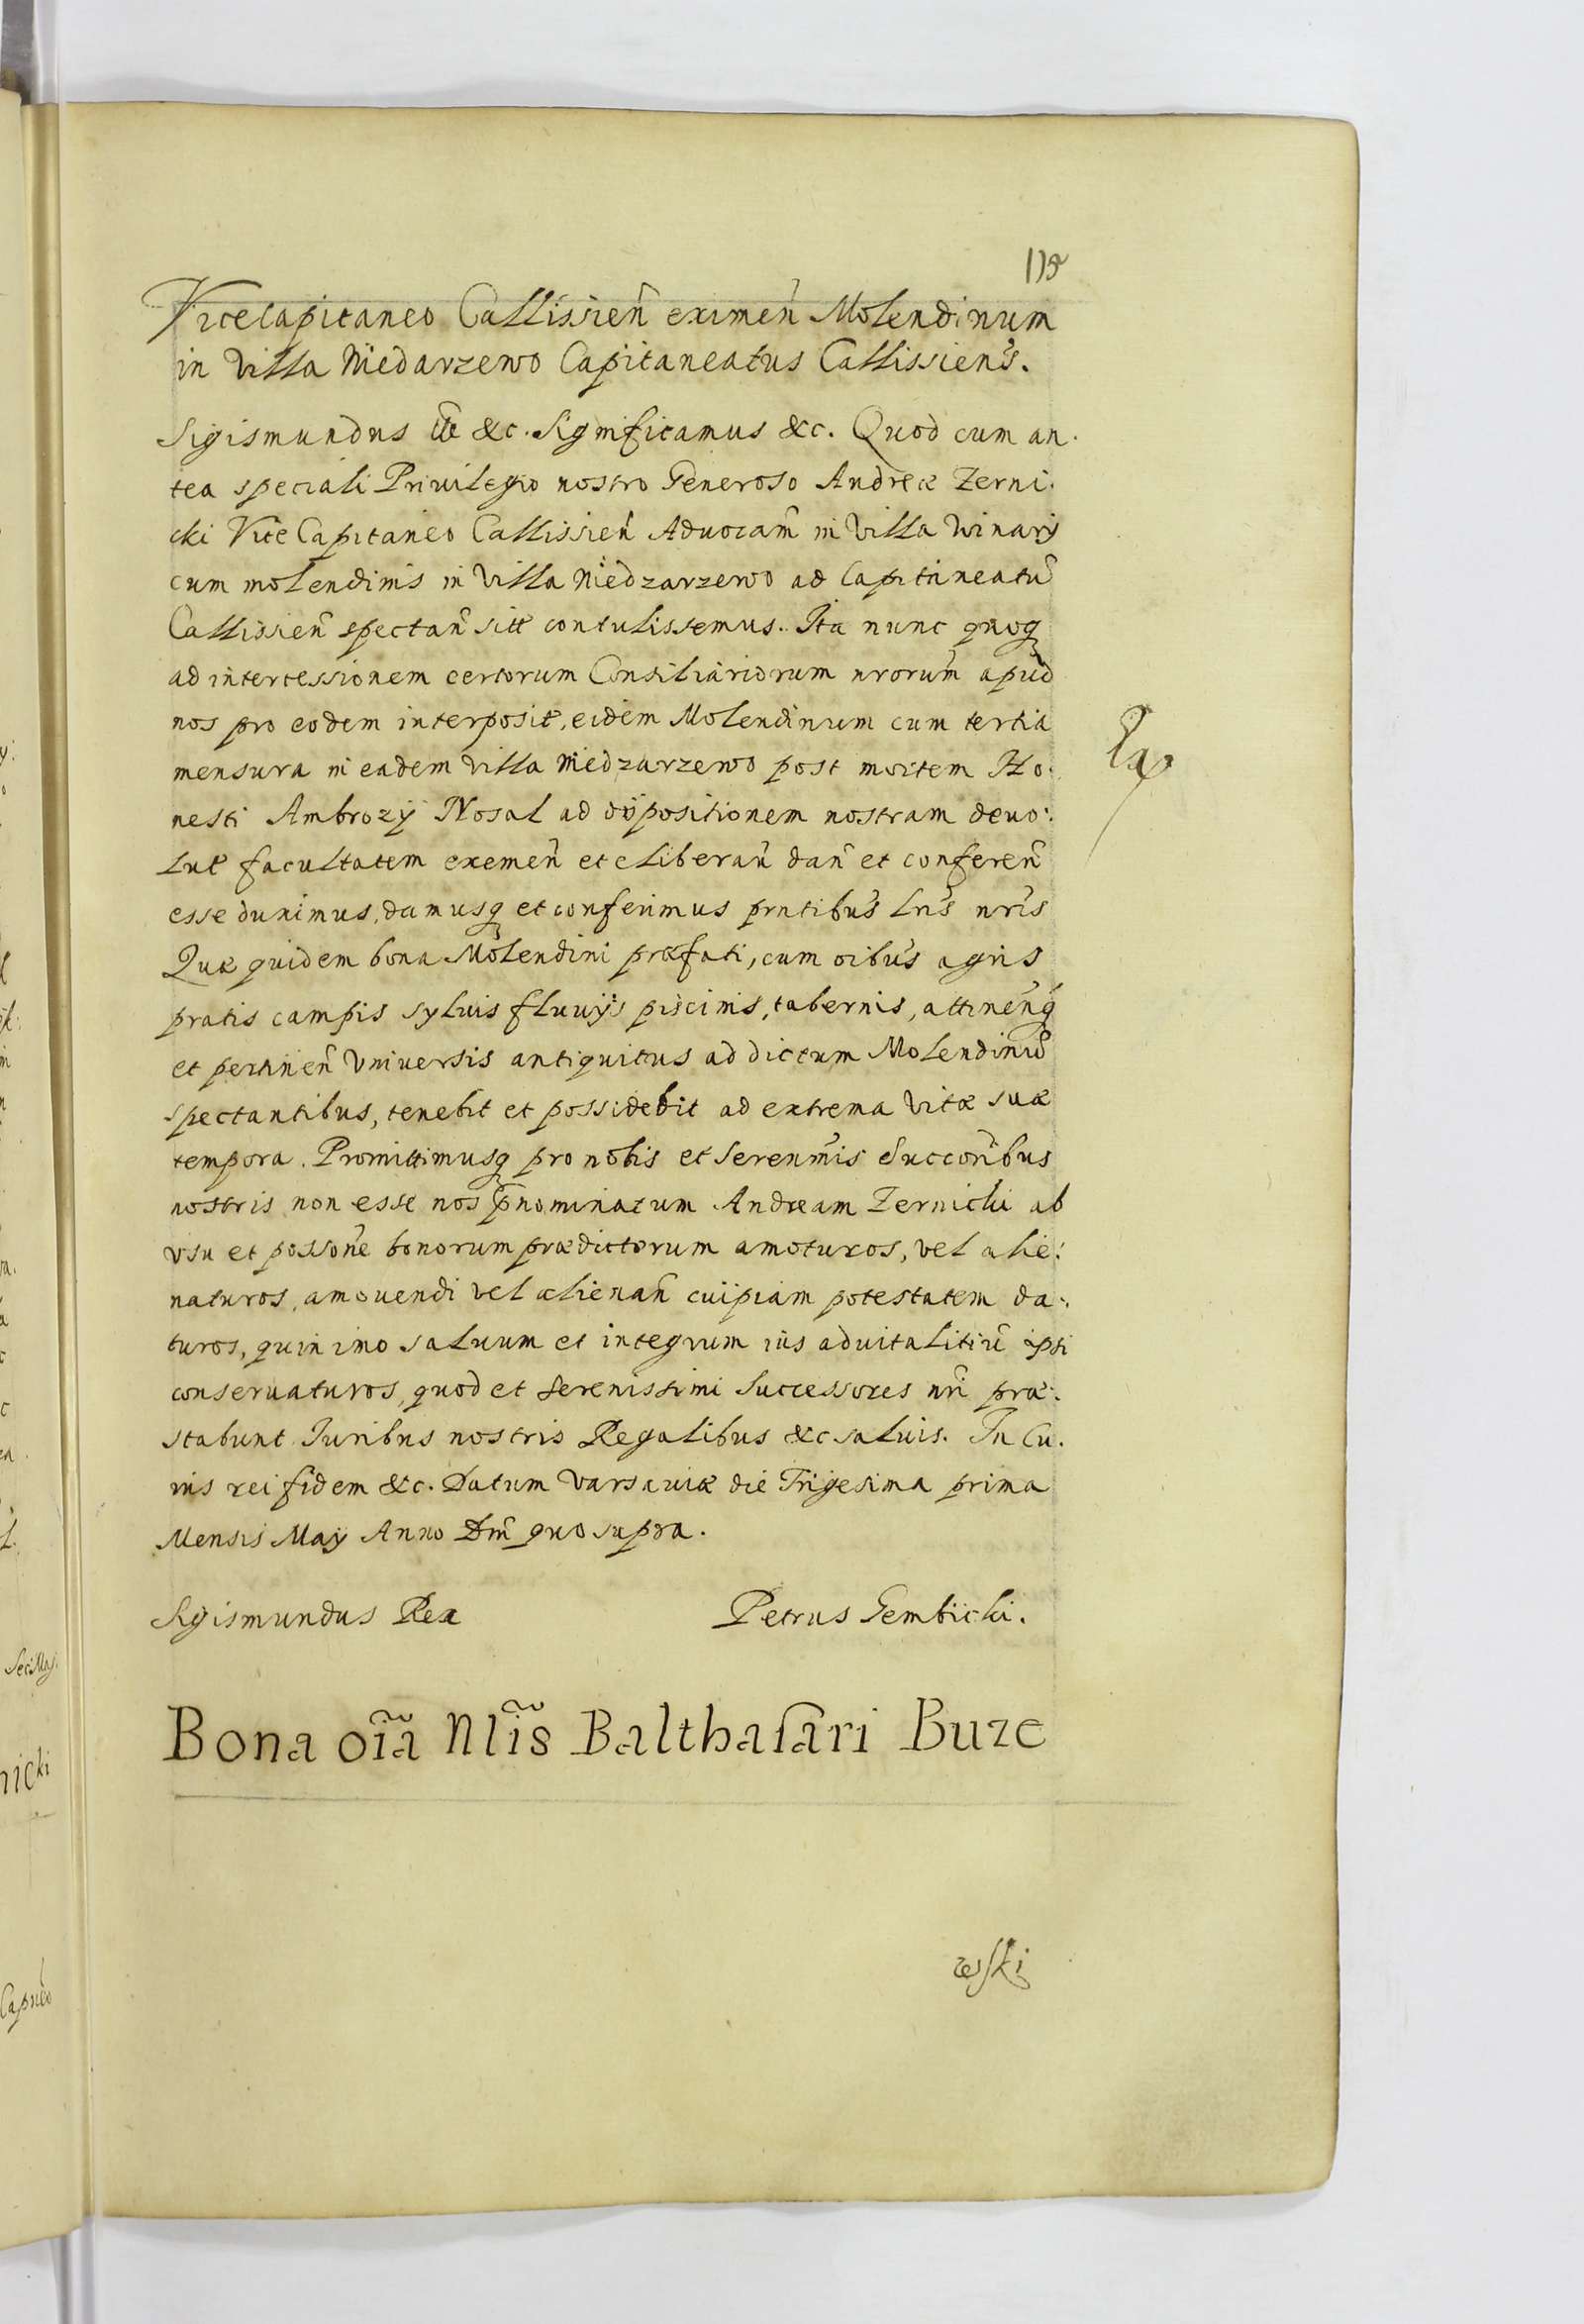 Vicecapitaneo Callissien̄ eximen̄ Molendinum
in Villa Niedarzewo Capitaneatus Callissiens̄.
Sigismundus &c. Significamus &c. Quod cum an.
tea speciali Priuilegio nostro Generoso Andreæ Zerni.
cki Vice Capitaneo Callissien̄ Aduocam̄ in Villa Winary
cum molendinis in Villa Niedzarzewo ad Capitaneatū
Callissien̄ spectan̄ sitt̄ contulissemus. Ita nunc quoq
ad intercessionem certorum Consiliariorum nrorum̄ apud
nos pro eodem interposit̄, eidem Molendinum cum tertia
mensura in eadem Villa Niedzarzewo post mortem Ho.
nesti Ambrozÿ Nosal ad dispositionem nostram deuo:
lut̄ facultatem exemen̄ et eliberan̄ dan̄ et conferen̄
esse duximus, damusq et conferimus prntibus̄ Lris̄ nris̄
Quæ quidem bona Molendini præfati, cum oibus̄ agris
pratis campis syluis fluuijs piscinis, tabernis, attinen̄q
et pertinen̄ Vniuersis antiquitus ad dictum Molendinū
spectantibus, tenebit et possidebit ad extrema vitæ suæ
tempora. Promittimusq pro nobis et Serenm̄is Succorībus
nostris non esse nos p̄nominatum Andream Zernicki ab
vsu et possone̅ bonorum prædictorum amoturos, vel alie:
naturos, amouendi vel alienan̄ cuipiam potestatem da:
turos, quin imo saluum et integrum ius aduitalitiū ipsi
conseruaturos, quod et Serenissimi Successores nrī præ:
stabunt Iuribus nostris Regalibus &c saluis. In Cu.
ius rei fidem &c. Datum Varsauiæ die Trigesima prima
Mensis Maÿ Anno Dm̄ quo supra.
Sigismundus Rex Petrus Gembicki.
Bona oīa Nlīs Balthasari Buze
wski